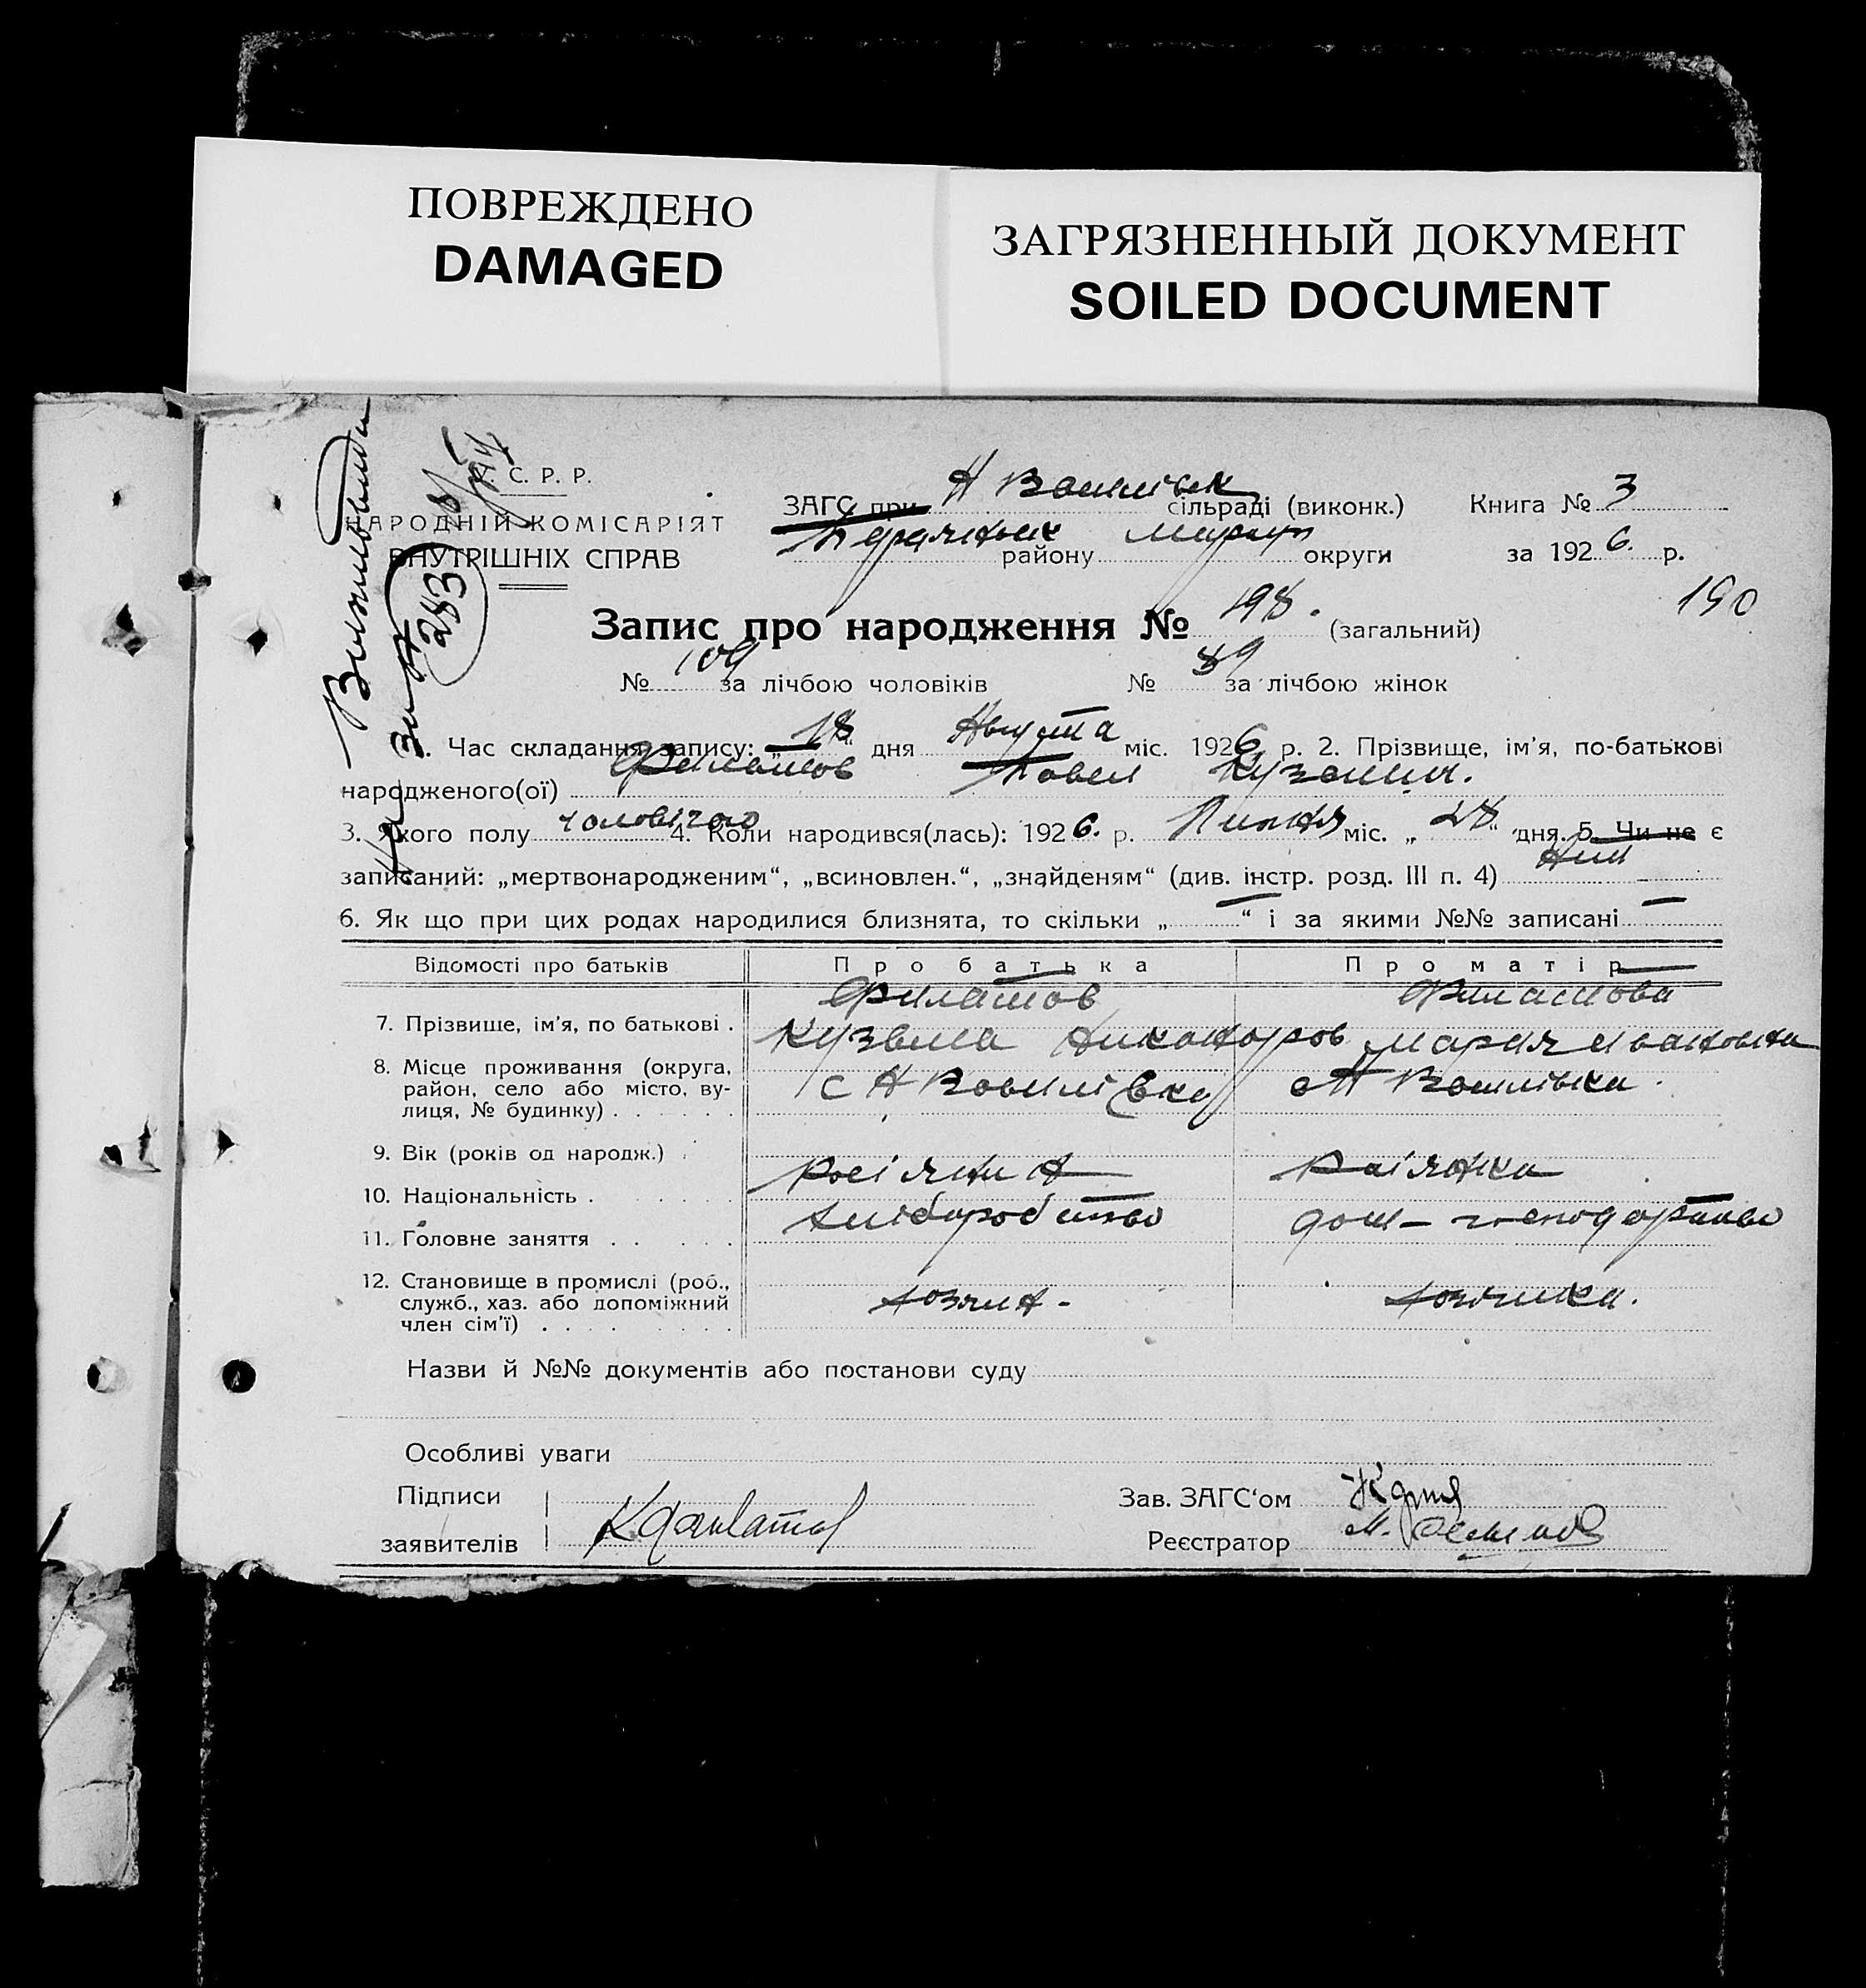 ПОВРЕЖДЕНО
DAMAGED
ЗАГРЯЗНЕННЫЙ ДОКУМЕНТ
SOILED DOCUMENT
283
С. Р. Р.
НАРОДНІЙ КОМІСАРІЯТ
ВНУТРІШНІХ СПРАВ
ЗАГС при Н сільраді (виконк.) Книга № 3
району округи за 192 6. р.
190
Запис про народження № 198. (загальний)
№ 109 за лічбою чоловіків № 89 за лічбою жінок
Час складання запису: „18“ дня Августа міс. 1926 р. 2. Прізвище, ім’я, по-батькові
народженого(ої) Филатов Павел
3. Якого полу чоловічого 4. Коли народився(лась): 192 6. р. Липня міс. „28“ дня. 5. Чи не є
записаний: „мертвонародженим“, „всиновлен.“, „знайденям“ (див. інстр. розд. III п. 4)
6. Як що при цих родах народилися близнята, то скільки „ — “ і за якими №№ записані —
Відомості про батьків Про батька Про матір
Филатов Филатова
7. Прізвище, ім’я, по батькові . Кузьма Никаноров Мария Ивановна
8. Місце проживання (округа, район, село або місто, вулиця, № будинку) . . . . . . с Н
9. Вік (років од народж.)
10. Національність . . . . . . . росіянин росіянка
11. Головне заняття . . . . . . хліборобство дом-господарство
12. Становище в промислі (роб., служб., хаз. або допоміжний член сім’ї) . . . . . . . . . хозяин -
Назви й №№ документів або постанови суду
Особливі уваги
Підписи
заявителів КФилатов
Зав. ЗАГС‘ом
Реєстратор М.